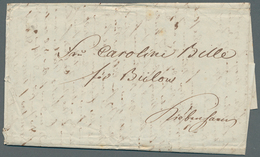 Frú Caroline Bille
før Bülow
Kiöbenhavn